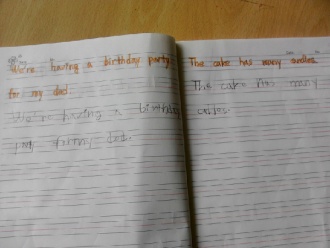 We're having a birthday party
for my dad
We're having a birthday
my dad.
The cake has many candles.
The cake has many